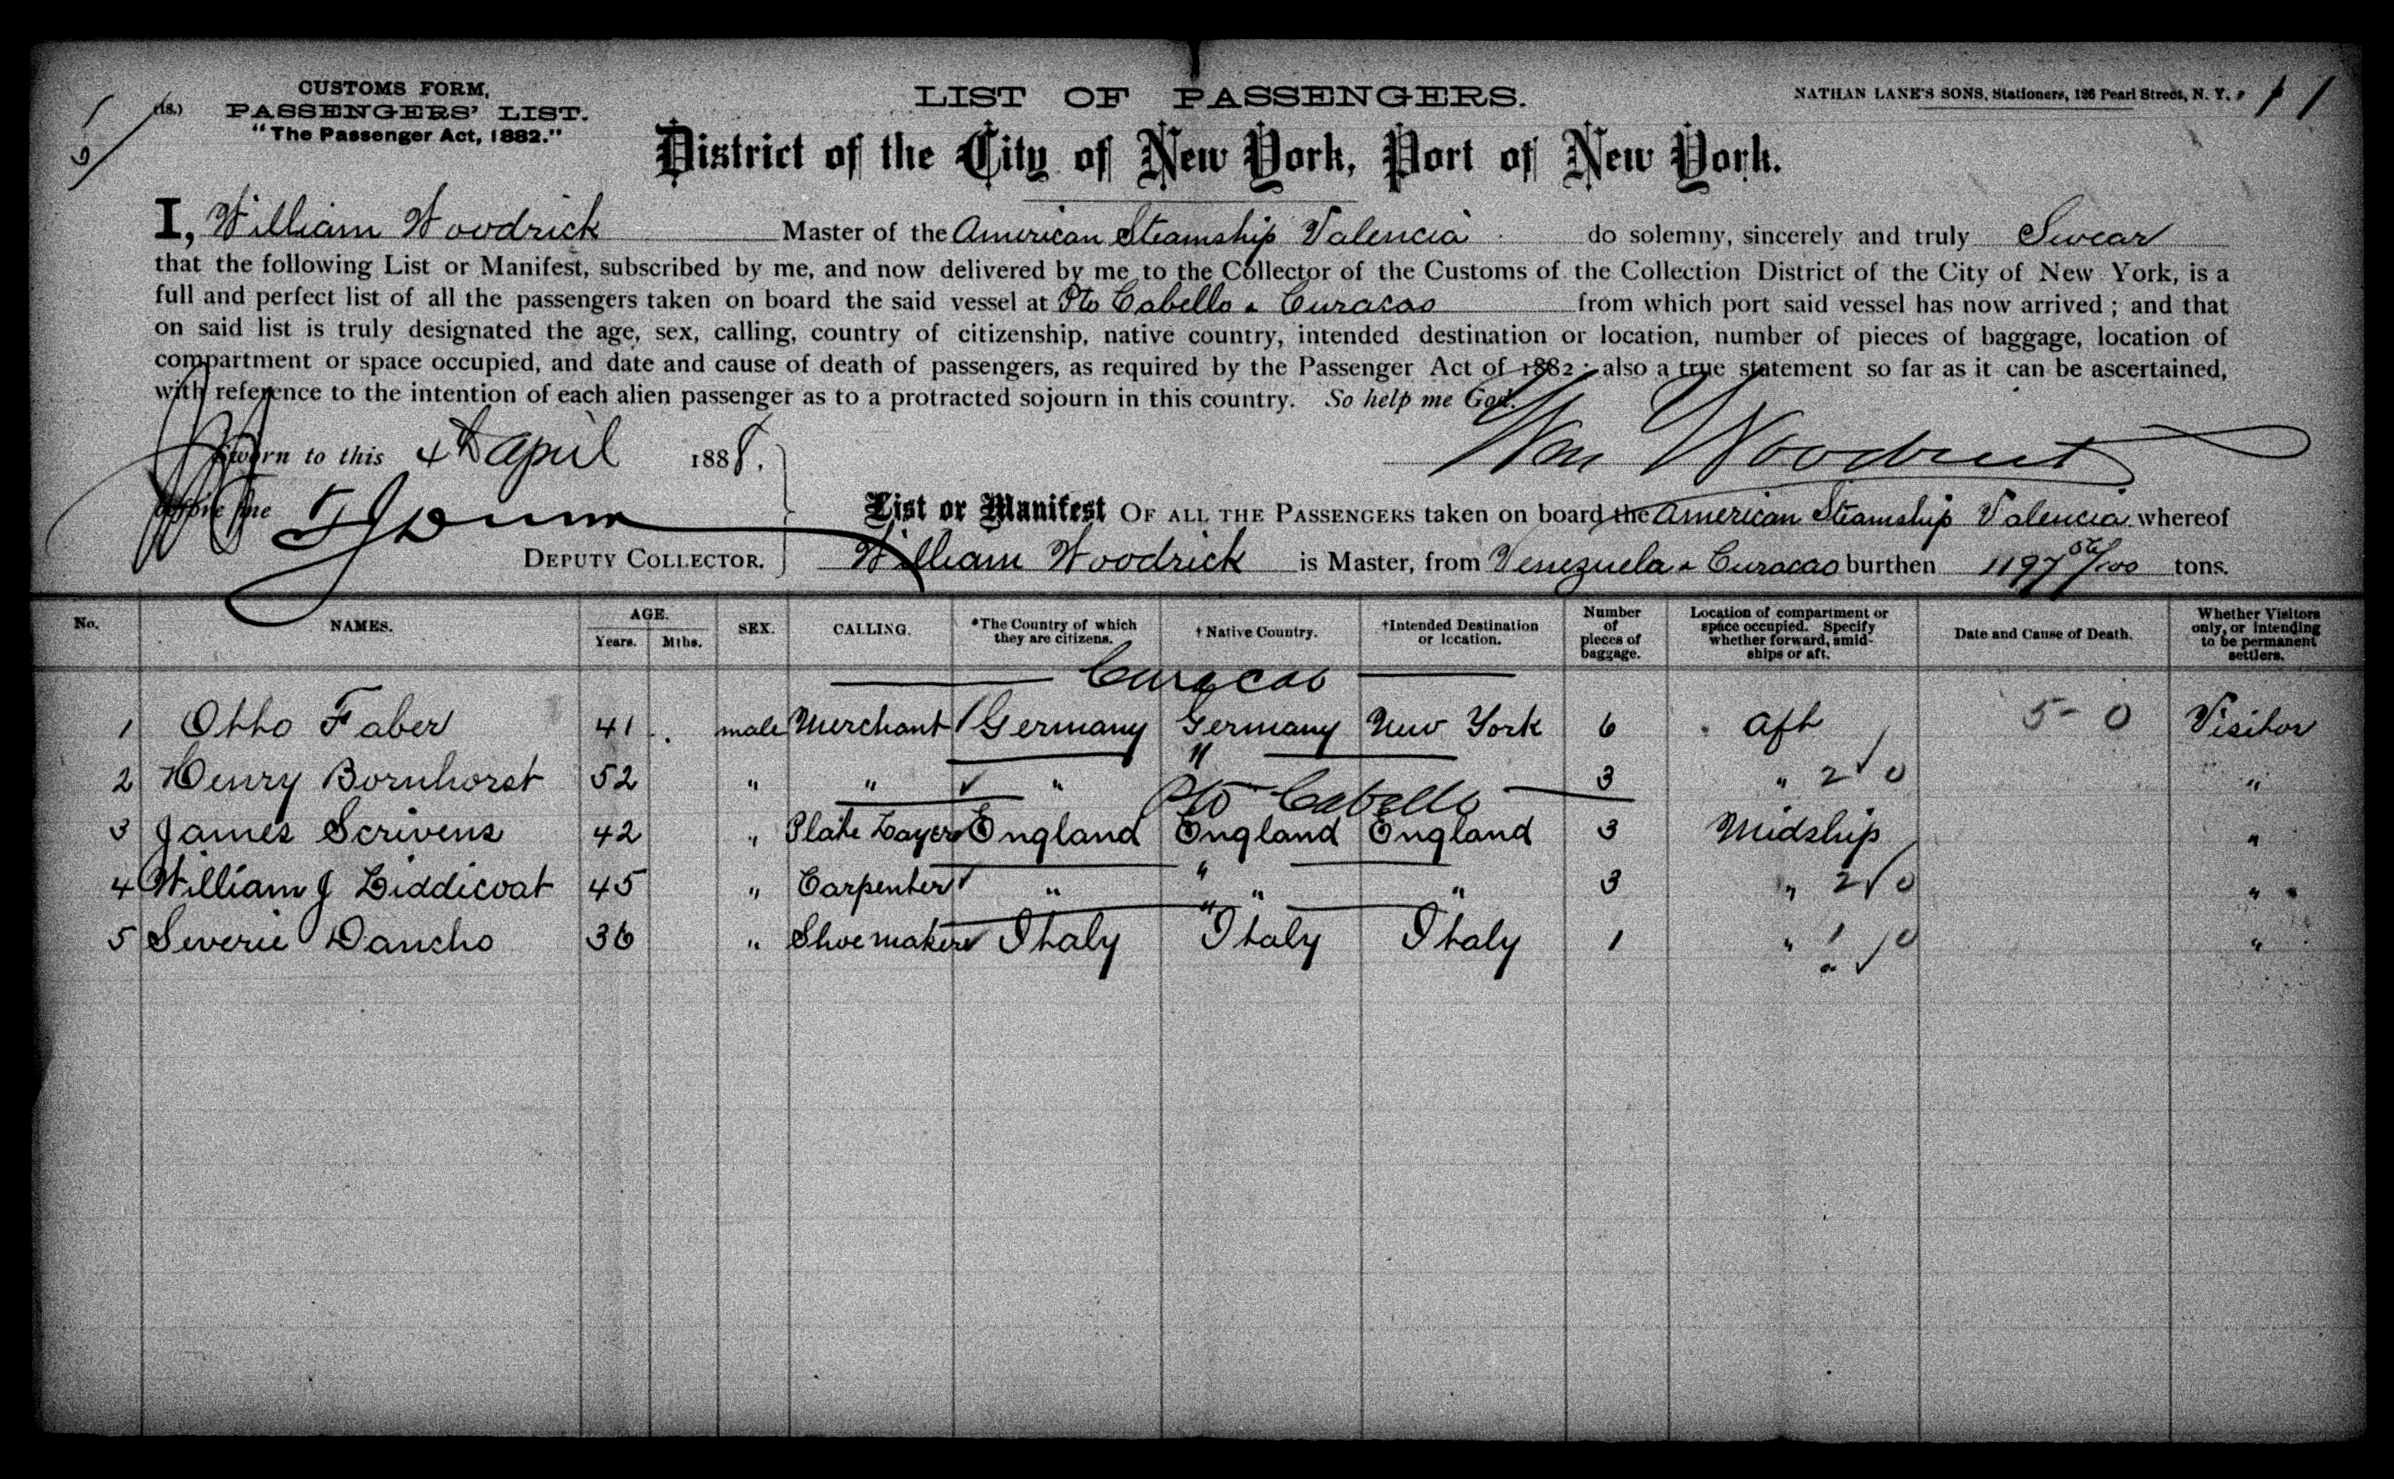 (18.)
CUSTOMS FORM,
PASSENGERS' LIST.
"The Passenger Act, 1882."
LIST OF PASSENGERS.
NATHAN LANE'S SONS, Stationers, 126 Pearl Street, N. Y.
District of the City of New York, Port of New York.
I, William Woodrick Master of the American Steamship Valencia do solemny, sincerely and truly Swear
that the following List or Manifest, subscribed by me, and now delivered by me to the Collector of the Customs of the Collection District of the City of New York, is a
full and perfect list of all the passengers taken on board the said vessel at Pto Cabello & Curacao from which port said vessel has now arrived ; and that
on said list is truly designated the age, sex, calling, country of citizenship, native country, intended destination or location, number of pieces of baggage, location of
compartment or space occupied, and date and cause of death of passengers, as required by the Passenger Act of 1882 ; also a true statement so far as it can be ascertained,
with reference to the intention of each alien passenger as to a protracted sojourn in this country. So help me God.
Sworn to this 4th April 1888. Wm
before me
DEPUTY COLLECTOR.
List or Manifest OF ALL THE PASSENGERS taken on board the American Steamship Valencia whereof
William Woodrick is Master, from Venezuela & Curacao burthen 1197 56/100 tons.
No. NAMES. AGE. Years. Mths. SEX. CALLING. *The Country of which they are citizens. † Native Country. †Intended Destination or location. Number of pieces of baggage. Location of compartment or space occupied. Specify whether forward, amidships or aft. Date and Cause of Death. Whether Visitors only, or intending to be permanent settlers.
Curacao
1 Otto Faber 41 male Merchant Germany Germany New York 6 aft 5-0 Visitor
2 Henry Bornhorst 52 " " " " 3 " 2 0 "
Pto Cabello
3 James Scrivens 42 " Plate Layer England England England 3 Midship "
4 William J Liddicoat 45 " Carpenter " " " 3 " 2 0 "
5 Severie Dancho 36 " Shoemaker Italy Italy Italy 1 " 1 0 "